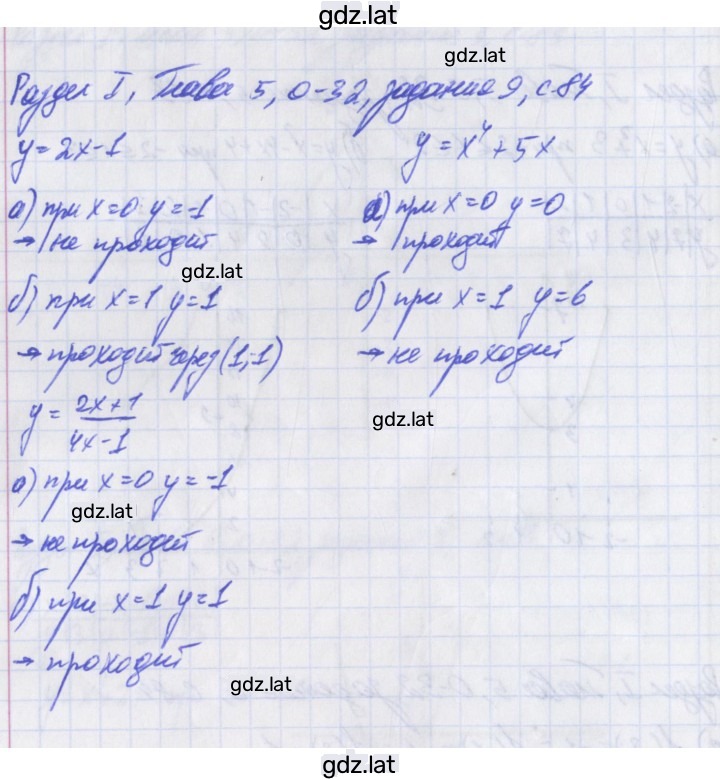 gdz.lat
gdz.lat
Раздел I, Глава 5, О-32, задание 9, с.84
y=2x-1
а) при x=0 y=-1
→ не проходит
gdz.lat
б) при x=1 y=1
→ проходит через (1;1)
y = x⁴+5x
а) при x=0 y=0
→ проходит
б) при x=1 y=6
→ не проходит
gdz.lat
y = (2x+1)/(4x-1)
а) при x=0 y=-1
gdz.lat
→ не проходит
б) при x=1 y=1
→ проходит
gdz.lat
gdz.lat